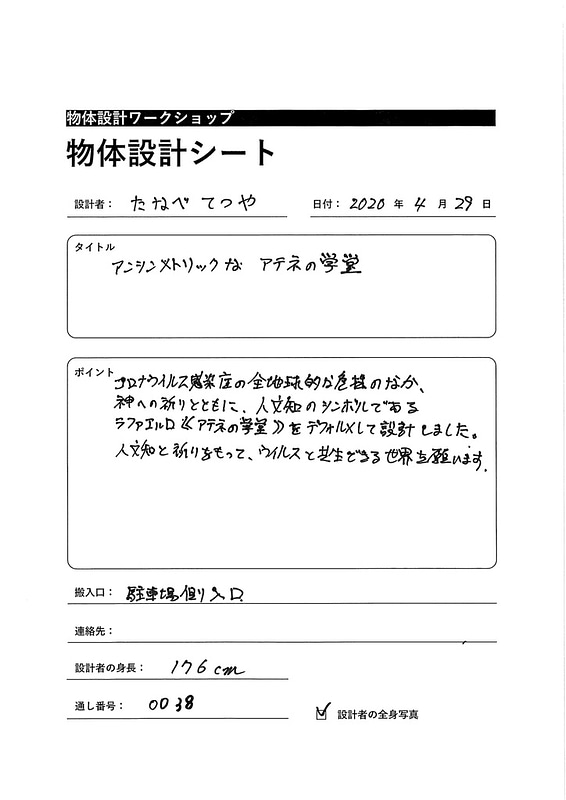 物体設計ワークショップ
物体設計シート
設計者： たなべ てつや 日付： 2020 年 4 月 29 日
タイトル
アンシンメトリックな アテネの学堂
ポイント
コロナウイルス感染症の全地球的な危機のなか、
神への祈りとともに、人文知のシンボルである
ラファエルロ《アテネの学堂》をデフォルメして設計しました。
人文知と祈りをもって、ウイルスと共生できる世界を願います。
搬入口： 駐車場側入口
連絡先：
設計者の身長： 176cm
通し番号： 0038
設計者の全身写真